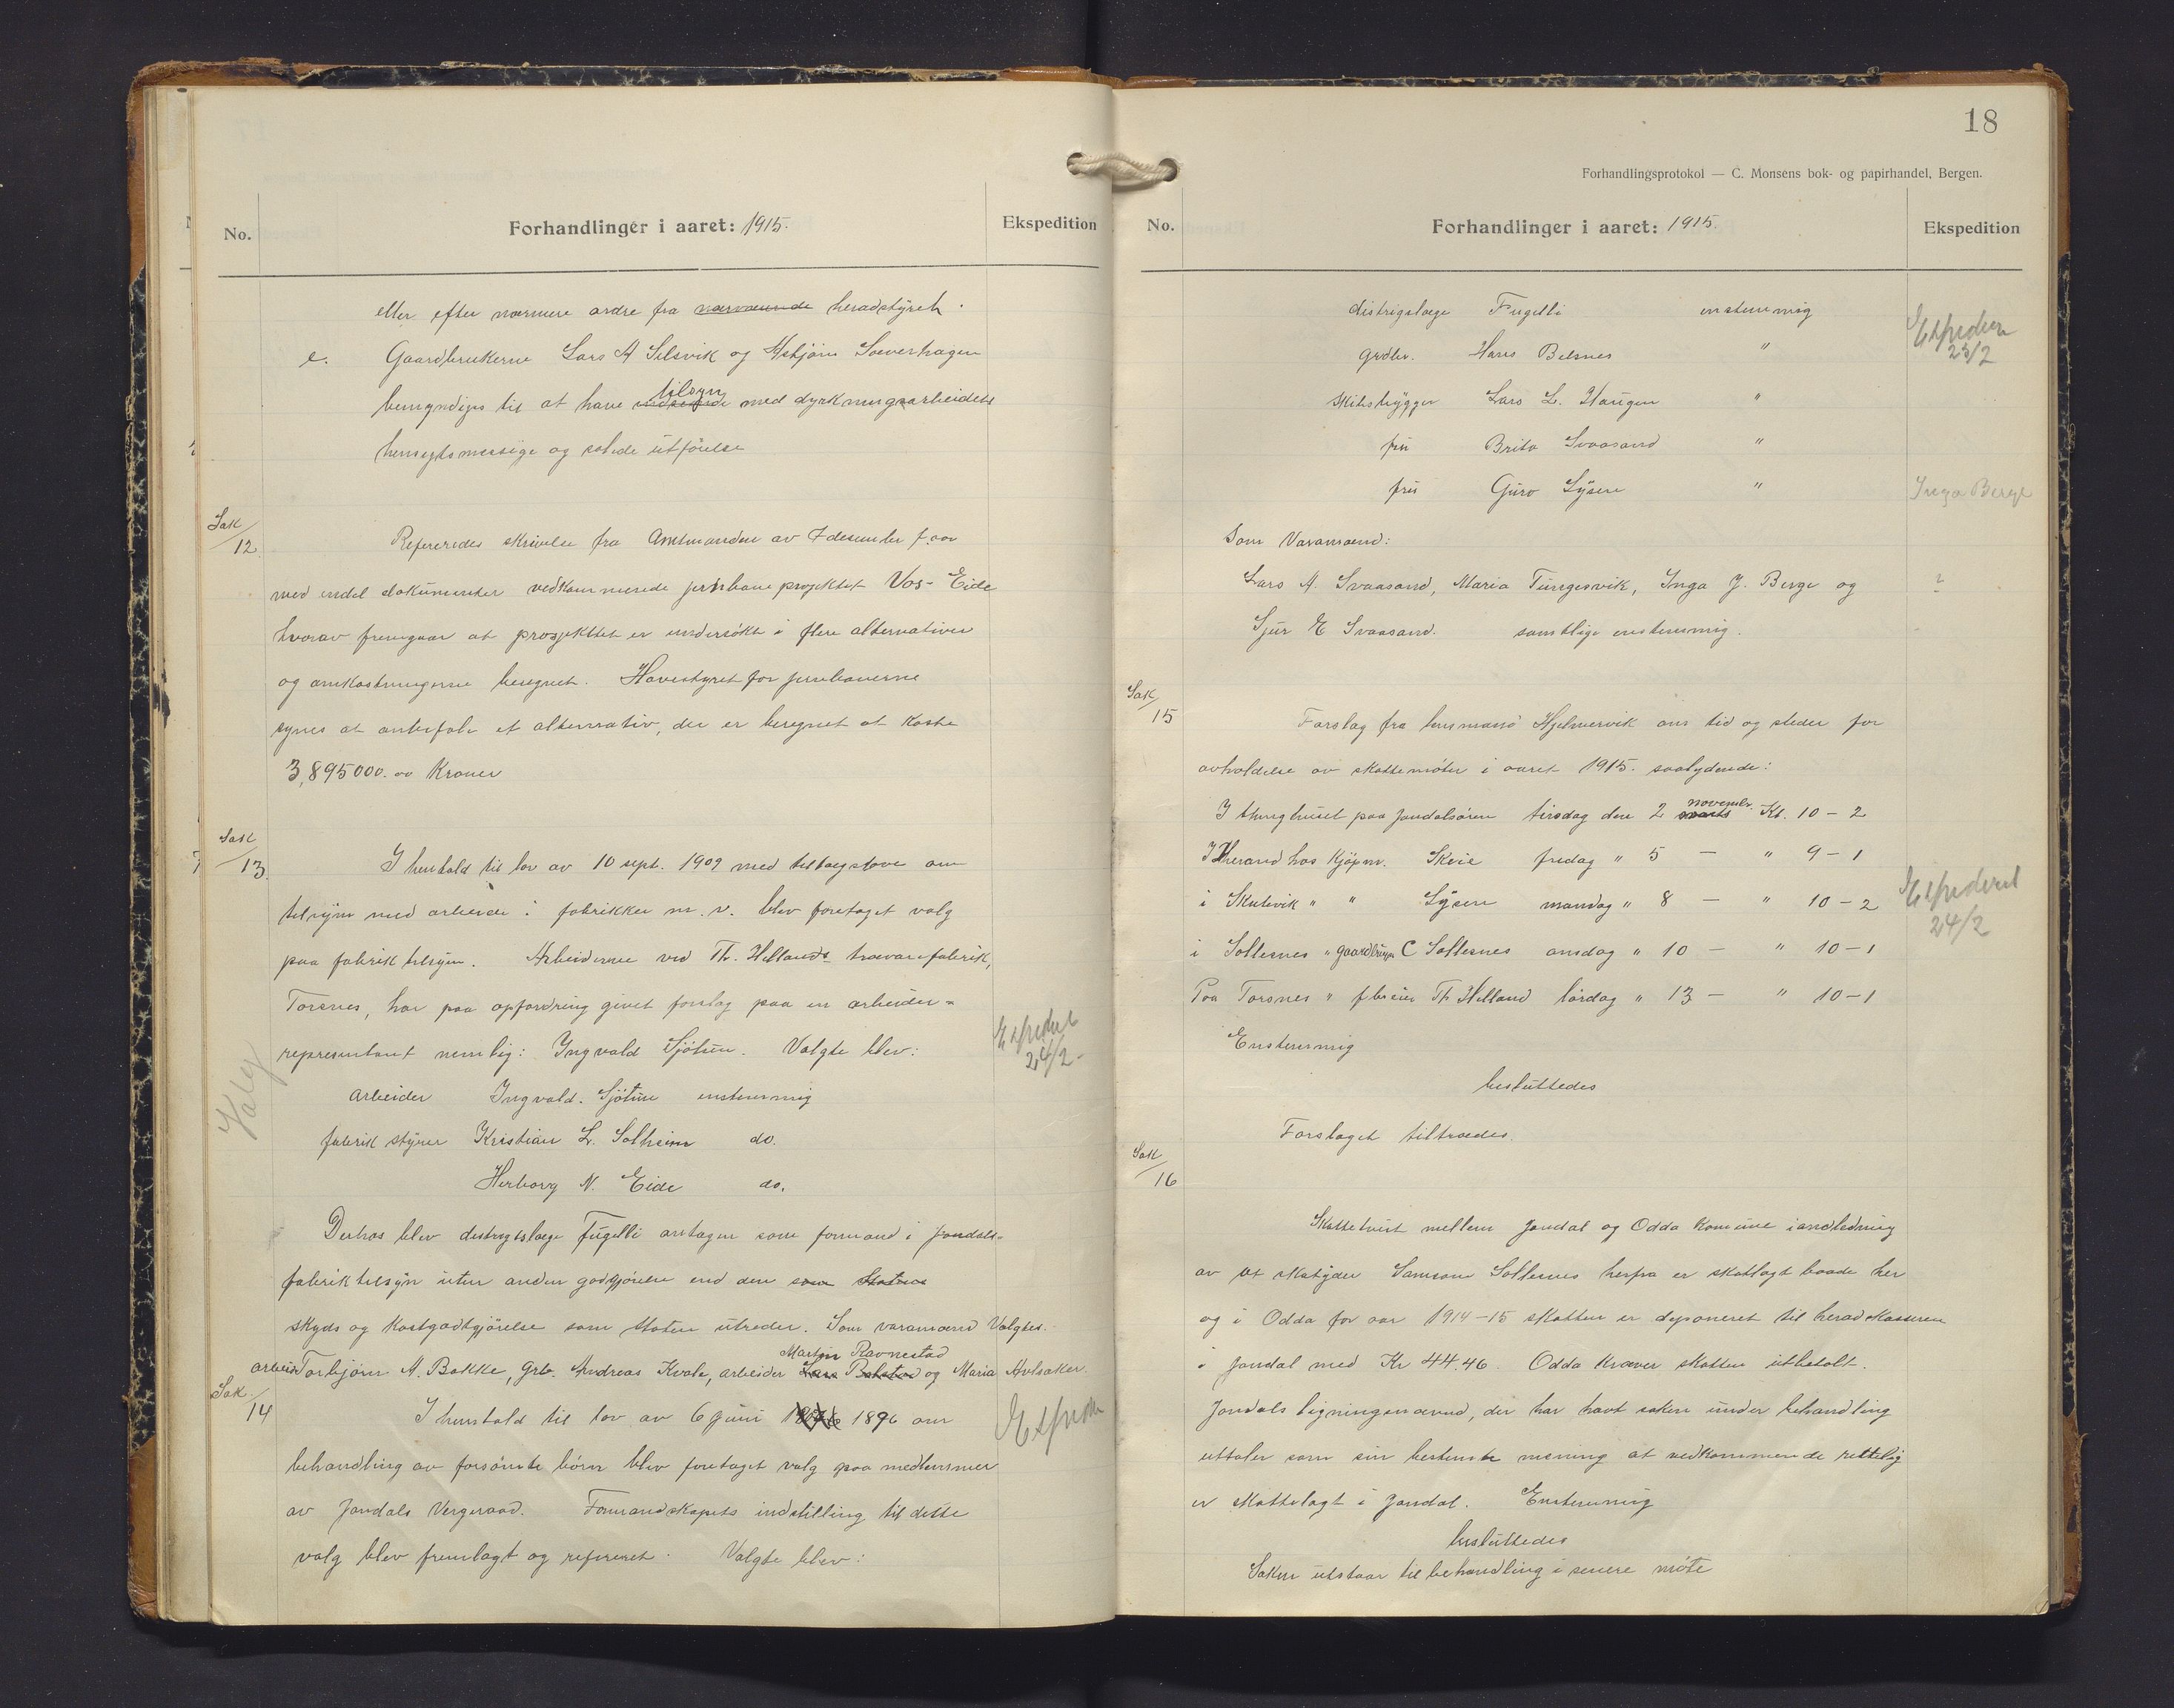 No.
Forhandlinger i aaret: 1915.
Ekspedition
eller efter nærmere ordre fra nærværende heradstyret.
e. Gaardbrukerne Lars A Selsvik og Asbjørn Saeverhagen
bemyndiges til at have tilsyn med dyrkningsarbeidets
hensigtsmessige og solide utførelse
Sak 12
Refereredes skrivelse fra Amtmanden av 7 desember f. aar
med endel dokumenter vedkommende jernbaneprojektet Vos-Eide
hvorav fremgaar at prosjektet er undersøkt i flere alternativer
og omkostningerne beregnet. Hovestyret for jernbanerne
synes at anbefale et alternativ, der er beregnet at koste
3,895000.00 Kroner
Sak 13
I henhold til lov av 10 sept. 1909 med tillægslove om
tilsyn med arbeide i fabrikker m. v. blev foretaget valg
paa fabriktilsyn. Arbeiderne ved Th. Hellands trævarefabrik,
Torsnes, har paa opfordring givet forslag paa en arbeider-
representant nemlig: Ingvald Sjötun. Valgte blev:
Ekspedert 24/2-
Valg
Arbeider Ingvald. Sjötun enstemmig
fabrik styrer Kristian L. Solheim do.
Herborg N. Eide do.
Derhos blev distrigtslæge Fugelli antagen som formand i Jondals-
fabriktilsyn uten anden godtgjörelse end den som Staten
skyds og Kostgodtgjörelse som staten utreder. Som varamænd Valgtes.
Martin Ravnestad
arbeid Torbjörn A. Bakke, Grb. Andreas Kvale, arbeider Lars og Maria Avlsaker.
Sak 14
I henhold til lov av 6 Juni 1896 om
behandling av forsömte börn blev foretaget valg paa medlemmer
av Jondals Vergeraad. Formandskapets indstilling til dette
valg blev fremlagt og referert. Valgte blev:
18
Forhandlingsprotokol — C. Monsens bok- og papirhandel, Bergen.
No.
Forhandlinger i aaret: 1915.
Ekspedition
distrigslæge Fugelli enstemmig
Ekspedert 23/2
grdbr. Hans Belsnes "
Skibsbygger Lars L. Haugen "
fru Brita Svaasand "
fru Guro Lysen "
Inga Berge
Som Varamænd:
Lars A. Svaasand, Maria Tungesvik, Inga J. Berge og
?
Sjur E Svaasand. samtlige enstemmig.
Sak 15
Forslag fra lensmand Hjelmervik om tid og steder for
avholdelse av skattemöter i aaret 1915. saalydende:
I thinghuset paa Jondalsören tirsdag den 2 marts novembr. Kl. 10 - 2
I Herand hos Kjöpm. Skeie fredag " 5 — " 9 - 1
i Skutevik " " Lysen mandag " 8 — " 10 - 2
Ekspederet 24/2
i Sollesnes " gaardbruger C Sollesnes onsdag " 10 — " 10 - 1
Paa Torsnes " fbreier Th Helland lördag " 13 — " 10 - 1
Enstemmig
besluttedes
Forslaget tiltrædes.
Sak 16
Skattetvist mellem Jondal og Odda Komune i andledning
av at skatyder Samson Sollesnes herfra er skatlagt baade her
og i Odda for aar 1914-15 skatten er deponeret til heradskasseren
i Jondal med Kr 44.46. Odda kræver skatten utbetalt.
Jondals ligningsnævnd, der har havt saken under behandling
uttaler som sin bestemte mening at vedkommende rettelig
er skattelagt i Jondal. Enstemmig
besluttedes
Saken utstaar til behandling i senere möte